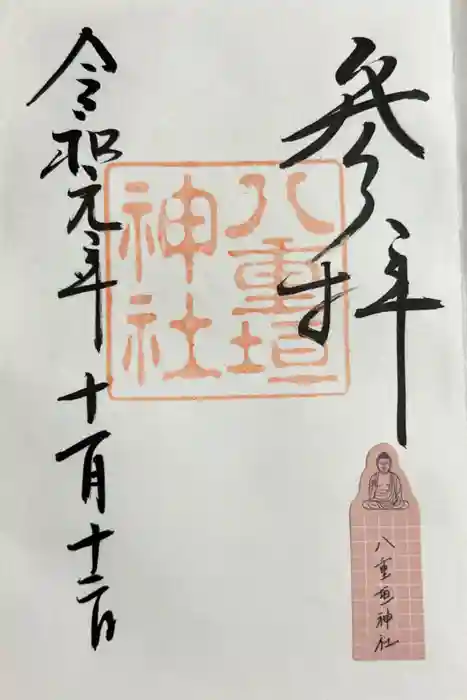 参拝
八重垣
神社
令和元年十月十二日
八重垣神社